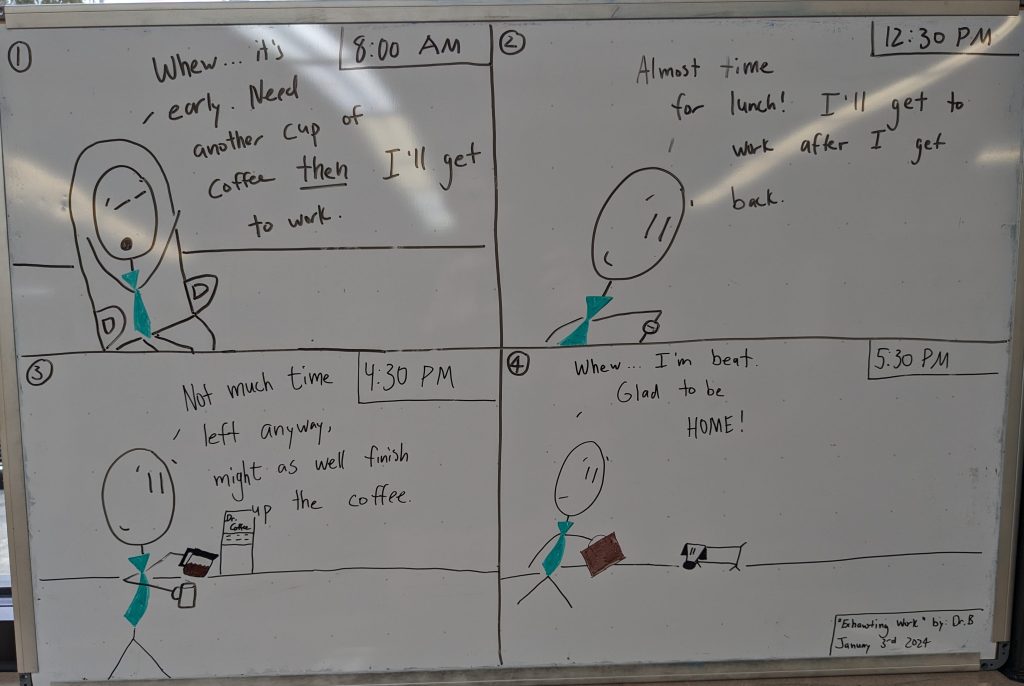 ①
8:00 AM
Whew... it's
early. Need
another cup of
coffee then I'll get
to work.
D
D
②
12:30 PM
Almost time
for lunch! I'll get to
work after I get
back.
③
4:30 PM
Not much time
left anyway,
might as well finish
up the coffee.
Dr.
Coffee
④
5:30 PM
Whew... I'm beat.
Glad to be
HOME!
"Exhausting Work" by: Dr. B
January 3rd 2024